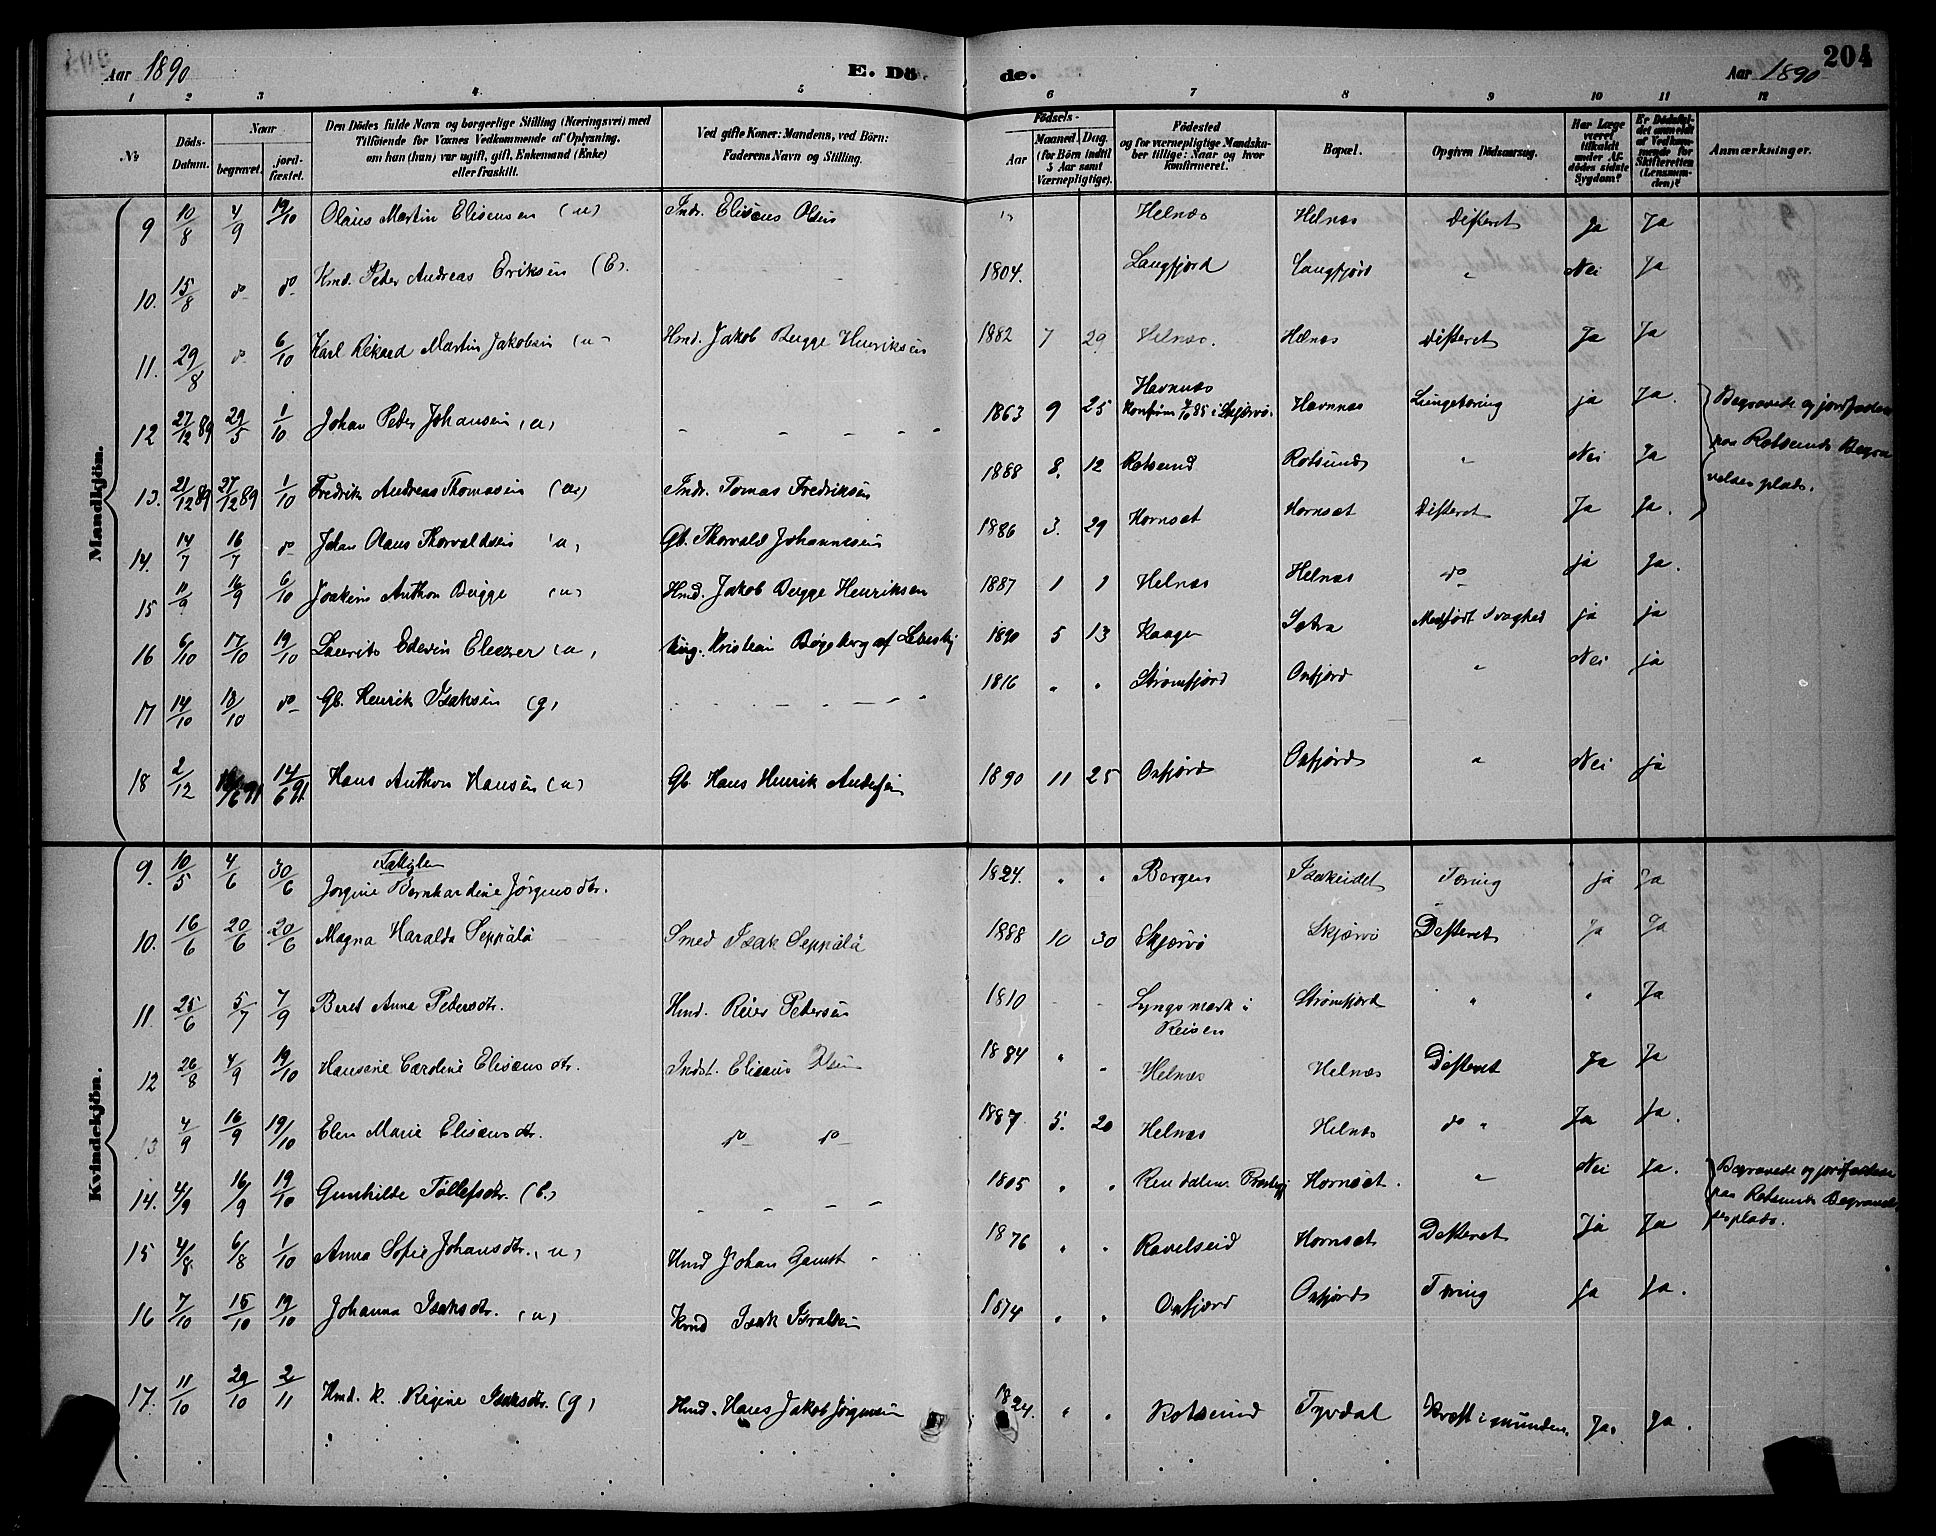 204
Aar 1890
E. Dö de.
Aar 1890
1 2 3 4 5 6 7 8 9 10 11 12
No
Döds-Datum.
Naar
begravet.
jord-fæstet.
Den Dödes fulde Navn og borgerlige Stilling (Næringsvei) med
Tilföiende for Voxnes Vedkommende af Oplysning,
om han (hun) var ugift, gift, Enkemand (Enke)
eller fraskilt.
Ved gifte Koner: Mandens, ved Börn:
Faderens Navn og Stilling.
Födsels-
Aar
Maaned Dag
(for Börn indtil
5 Aar samt
Værnepligtige).
Födested
og for værnepligtige Mandska-
ber tillige: Naar og hvor
konfirmeret.
Bopæl.
Opgiven Dödsaarsag.
Har Læge
været
tilkaldt
under Af-
dödes sidste
Sygdom?
Er Dödsfal-
det anmeldt
af Vedkom-
mende for
Skifteretten
(Lensman-
den)?
Anmærkninger.
Mandkjön.
9 10/8 4/9 19/10 Olaus Martin Elisensen (u) Indr. Elisæus Olsen Helnæs Helnæs Difteret Ja Ja
10. 15/8 do do Kmd. Peder Andreas Eriksen (E). 1804. Langfjord Langfjord " Nei Ja
11. 29/8 do 6/10 Karl Rikard Martin Jakobsen (u) Hmd. Jakob Bugge Henriksen 1882 7 29 Helnæs. Helnæs Difteret Ja Ja
12 27/12 89 29/5 1/10 Johan Peder Johansen (u) 1863 9 25 Havnnæs Konfirm 4/10 85 i Skjærvø. Havnnæs Lungetæring ja Ja. Begravede og jordfæstede
13. 21/12 89 27/12 89 1/10 Fredrik Andreas Thomasen (u) Indr. Tomas Fredriksen 1888 8. 12 Rotsund Rotsund " Nei Ja paa Rotsunds Begra
velses plads.
14. 14/7 16/7 do Johan Olaus Thorvaldsen (u) Gb. Thorvald Johannesen 1886 3. 29 Hornset Hornset Difteret Ja Ja.
15 11/9 16/9 6/10 Joakim Anthon Bugge (u) Hmd. Jakob Bugge Henriksen 1887 1 1 Helnæs Helnæs do ja Ja.
16 6/10 17/10 19/10 Laurits Edevin Eleezer (u) Ung. Kristian Bøgeberg af Lebesby 1890 5 13 Kaagen Sætra Medfødt Svaghed ja ja
17 14/10 18/10 do Gb. Henrik Isaksen (g) 1816 " " Strømfjord Oxfjord " Nei ja
18 2/12 6 91 14/6 91 Hans Anthon Hansen (u) Gb. Hans Henrik Andersen 1890 11 25 Oxfjord Oxfjord " Nei ja
Kvindekjön.
9. 10/5 4/6 30/6 Jørgine Bernhardine Jørgensdtr. 1824. " " Bergen Isakeidet Tæring ja Ja
10. 16/6 20/6 20/6 Magna Haralda Seppälä Smed Isak Seppälä 1888 10 30 Skjærvø Skjærvø Difteret Ja Ja
11. 25/6 5/7 7/9 Beret Anna Pedersdtr. Hmd. Reier Pedersen 1810 - - Lyngsmark i Reisen Strømfjord " " Ja
12 26/8 4/9 19/10 Hansine Cardine Elisæusdtr. Indst. Elisæus Olsen 1884 " " Helnæs Helnæs Difteret Ja Ja
13 4/9 16/9 19/10 Elen Marie Elisæusdtr. do do 1887 5. 20 Helnæs Helnæs do " Ja Ja.
14. 4/9 16/9 19/10 Gunhilde Tollefsdtr. (E.) 1805 " " Rendalen Præstegj Hornset. " Nei Ja. Begravede og jordfæstede
paa Rotsunds Begravel
sesplads.
15 4/8 6/8 1/10 Anna Sofie Johansdtr. (u) Hmd Johan Gamst 1876 " " Ravelseid Hornset Difteret Ja Ja
16 7/10 15/10 19/10 Johanna Isaksdtr. (u) Kmd Isak Isralsen 1874 " " Oxfjord Oxfjord Tæring Ja Ja.
17. 11/10 29/10 2/11 Hmd. k. Regine Isaksdtr. (g) Hmd. Hans Jakob Jørgensen 1824. " " Rotsund Tyvdal Kræft i munden. Ja. Ja.